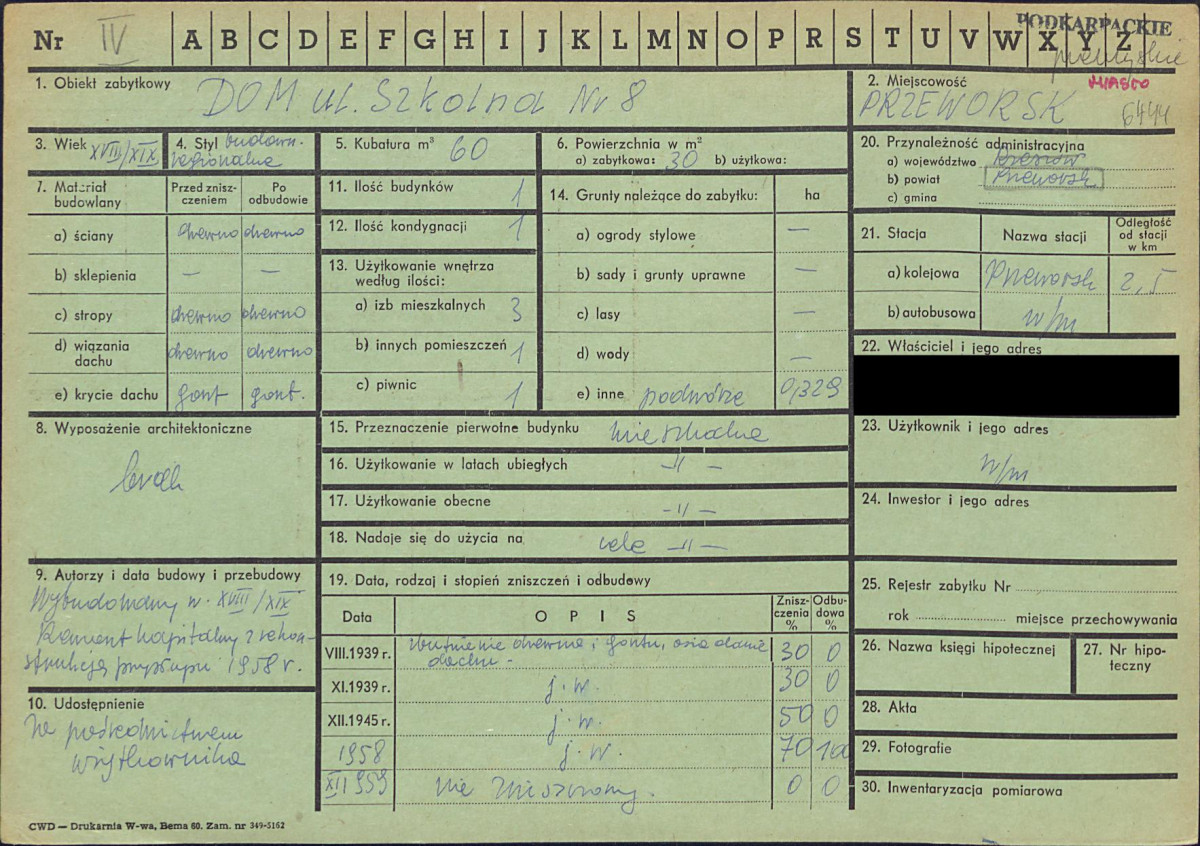 Nr IV A B C D E F G H I J K L M N O P R S T U V W X Y Z
PODKARPACKIE
1. Obiekt zabytkowy
DOM ul. Szkolna Nr 8
2. Miejscowość
MIASTO
PRZEWORSK 6444
3. Wiek XVIII/XIX
4. Styl budown.
regionalne
5. Kubatura m³ 60
6. Powierzchnia w m²
a) zabytkowa: 30 b) użytkowa:
7. Materiał
budowlany
Przed znisz-
czeniem
Po
odbudowie
a) ściany drewno drewno
b) sklepienia — —
c) stropy drewno drewno
d) wiązania
dachu drewno drewno
e) krycie dachu gont gont.
8. Wyposażenie architektoniczne
brak
9. Autorzy i data budowy i przebudowy
Wybudowany w. XVIII/XIX
Remont kapitalny z rekon-
strukcją przysłupu 1958 r.
10. Udostępnienie
Za pośrednictwem
użytkownika
11. Ilość budynków 1
12. Ilość kondygnacji 1
13. Użytkowanie wnętrza
według ilości:
a) izb mieszkalnych 3
b) innych pomieszczeń 1
c) piwnic 1
14. Grunty należące do zabytku: ha
a) ogrody stylowe —
b) sady i grunty uprawne —
c) lasy —
d) wody —
e) inne podwórze 0,329
15. Przeznaczenie pierwotne budynku mieszkalne
16. Użytkowanie w latach ubiegłych —„—
17. Użytkowanie obecne —„—
18. Nadaje się do użycia na cele —„—
19. Data, rodzaj i stopień zniszczeń i odbudowy
Data OPIS Znisz-
czenia
% Odbu-
dowa
%
VIII.1939 r. zbutwienie drewna i gontu, osiadanie
dachu - 30 0
XI.1939 r. j. w. 30 0
XII.1945 r. j. w. 50 0
1958 j. w. 70 100
XII 1959 nie zniszczony. 0 0
20. Przynależność administracyjna
a) województwo Rzeszów
b) powiat Przeworsk
c) gmina
21. Stacja Nazwa stacji Odległość
od stacji
w km
a) kolejowa Przeworsk 2,5
b) autobusowa w/m
22. Właściciel i jego adres
23. Użytkownik i jego adres
w/m
24. Inwestor i jego adres
25. Rejestr zabytku Nr
rok miejsce przechowywania
26. Nazwa księgi hipotecznej
27. Nr hipo-
teczny
28. Akta
29. Fotografie
30. Inwentaryzacja pomiarowa
CWD — Drukarnia W-wa, Bema 60. Zam. nr 349-5162